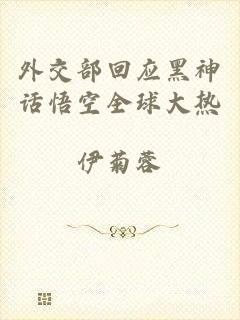 外交部回应黑神
话悟空全球大热
伊菊蓉